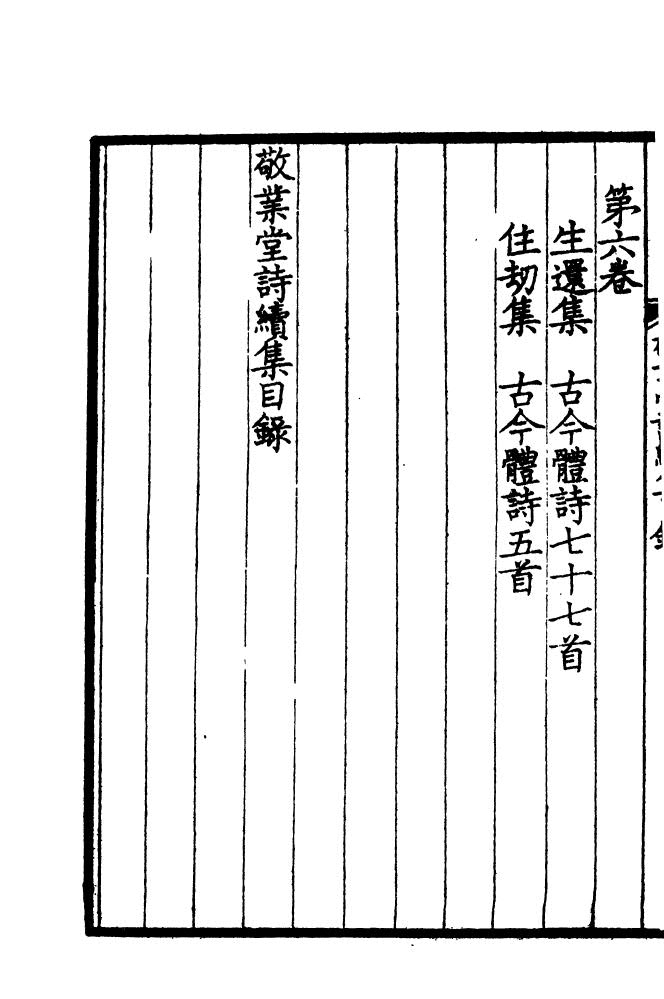 第六卷
生還集　古今體詩七十七首
住劫集　古今體詩五首
敬業堂詩續集目錄